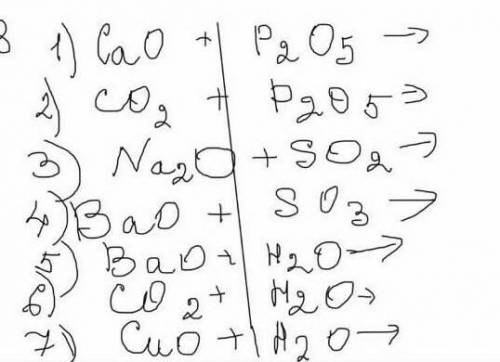 1) CaO + P2O5 →
2) CO2 + P2O5 →
3) Na2O + SO2 →
4) BaO + SO3 →
5) BaO + H2O →
6) CO2 + H2O →
7) CuO + H2O →